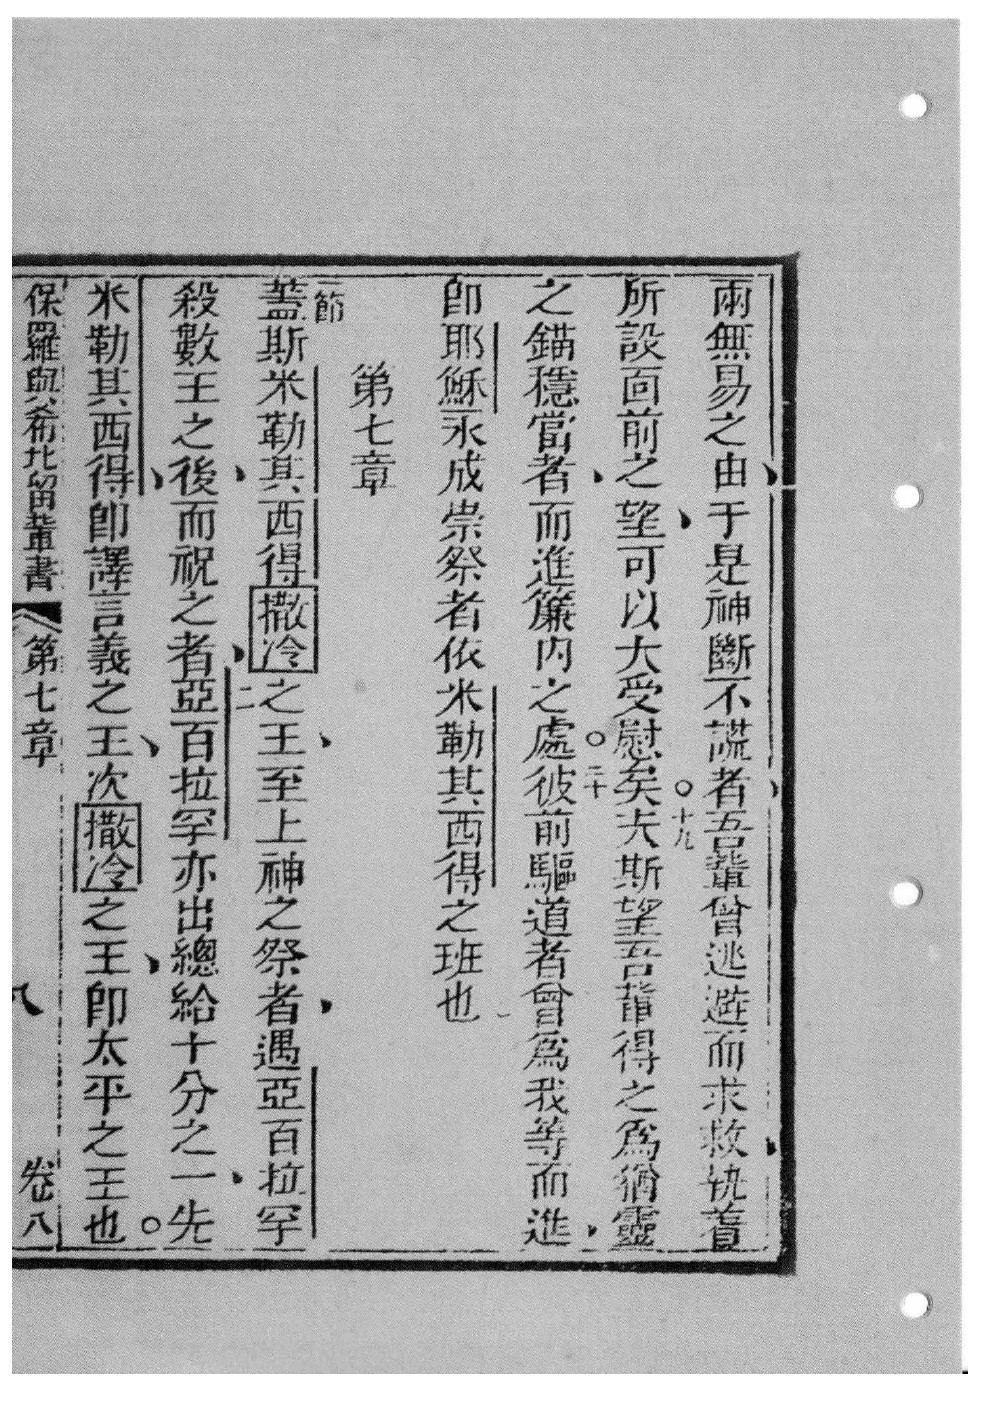 兩無易之由于是神斷不謊者吾輩曾逃遊而求救執着
所設面前之望可以大受慰矣○十九夫斯望吾輩得之爲猶靈
之錨穩當者而進簾內之處○二十彼前驅道者曾爲我等而進
卽耶穌永成祟祭者依米勒其西得之班也
第七章
一節蓋斯米勒其西得撒冷之王至上神之祭者遇亞百拉罕
殺數王之後而祝之者二亞百拉罕亦出總給十分之一先
米勒其西得卽譯言義之王次撒冷之王卽太平之王也○
保羅與希比留輩書 第七章 八 卷八